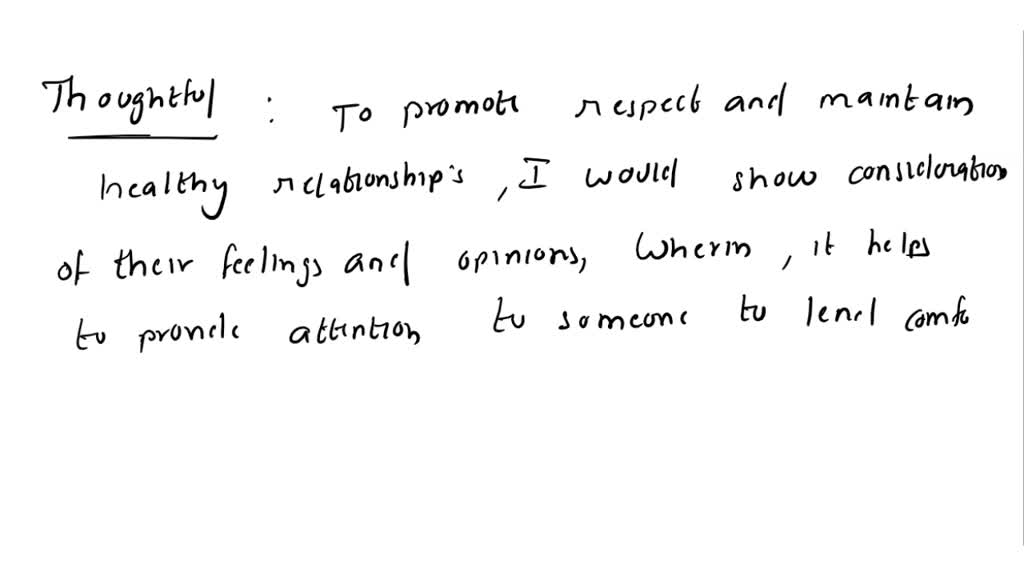 Thoughtful : To promote respect and maintain
healthy relationship's, I would show consideration
of their feelings and opinions, wherin, it helps
to provide attention to someone to lend comfo